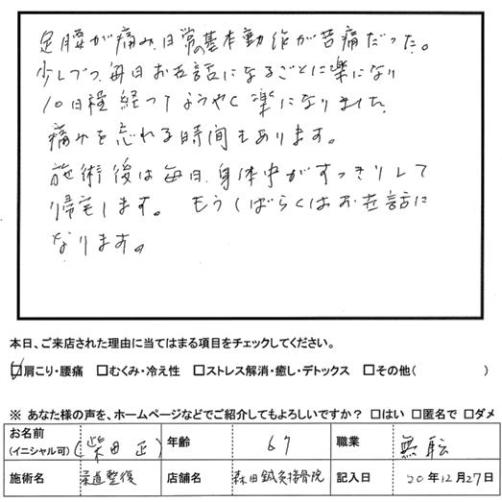 足腰が痛み、日常の基本動作が苦痛だった。
少しづつ毎日お世話になるごとに楽になり
10日程経つてようやく楽になりました、
痛みを忘れる時間もあります。
施術後は毎日、身体中がすっきりして
帰宅します。もうしばらくはお世話に
なります。
本日、ご来店された理由に当てはまる項目をチェックしてください。
☑肩こり・腰痛 □むくみ・冷え性 □ストレス解消・癒し・デトックス □その他( )
※ あなた様の声を、ホームページなどでご紹介してもよろしいですか？ □はい □匿名で □ダメ
お名前 (イニシャル可) (柴田 正) 年齢 67 職業 無職
施術名 柔道整復 店舗名 森田鍼灸接骨院 記入日 20年12月27日